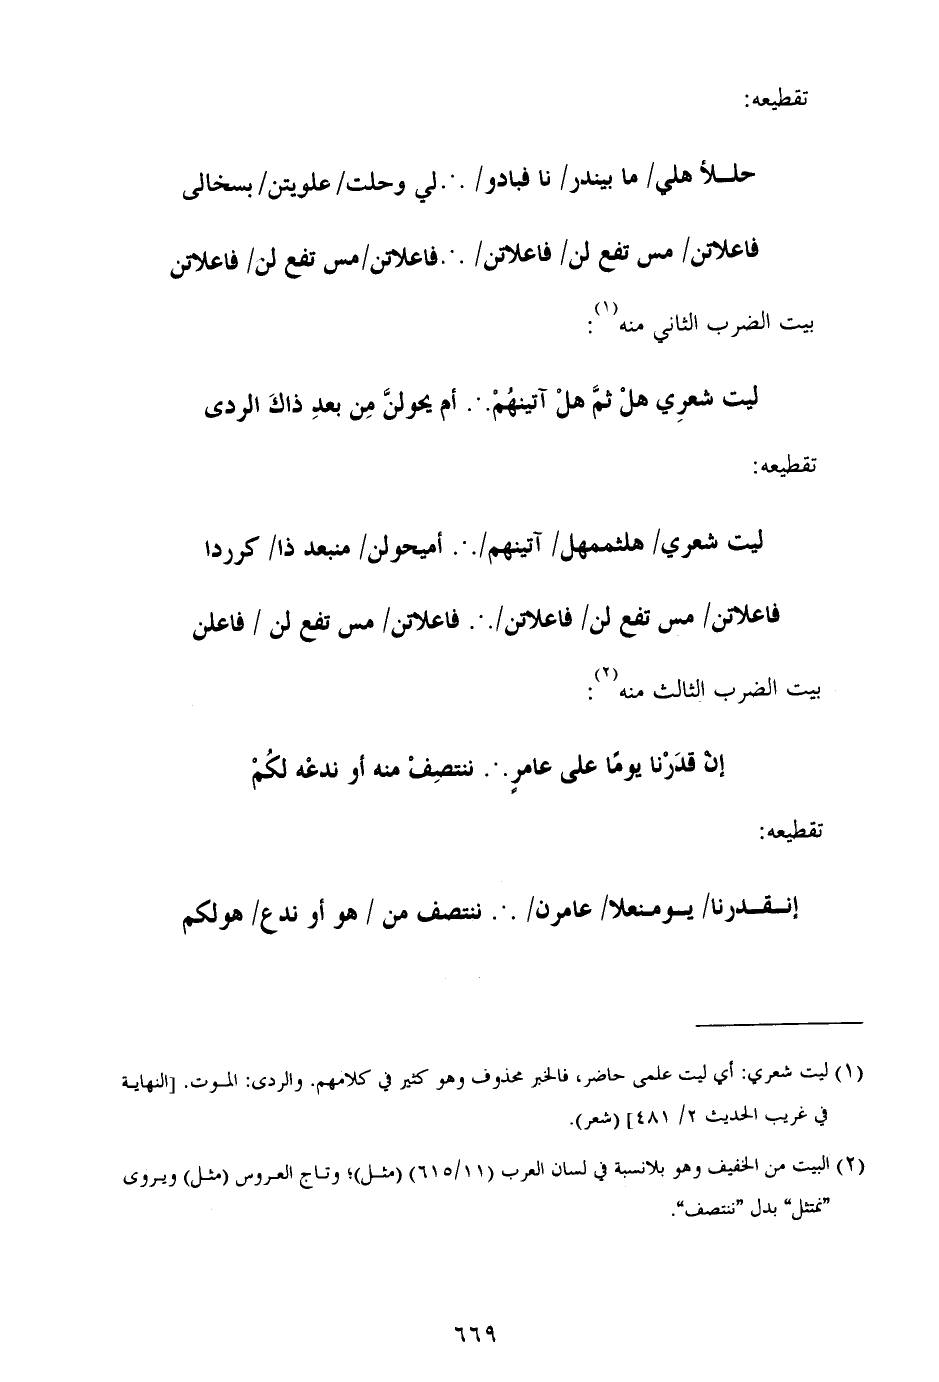 تقطيعه:
حلـلأ هلي/ ما بيندر/ نا فبادو/ .∴.لي وحلت/ علويتن/ بسخالى
فاعلاتن/ مس تفع لن/ فاعلاتن/ .∴.فاعلاتن/مس تفع لن/ فاعلاتن
بيت الضرب الثاني منه(١):
ليت شعرِي هلْ ثمَّ هلْ آتينهُمْ.∴. أم يحولنَّ مِن بعدِ ذاكَ الردى
تقطيعه:
ليت شعري/ هلثممهل/ آتينهم/.∴. أميحولن/ منبعد ذا/ كرردا
فاعلاتن/ مس تفع لن/ فاعلاتن/.∴. فاعلاتن/ مس تفع لن / فاعلن
بيت الضرب الثالث منه(٢):
إنْ قدَرْنا يومًا على عامرٍ.∴. ننتصِفْ منه أو ندعْه لكُمْ
تقطيعه:
إنـقـدرنا/ يـومـنعلا/ عامرن/ .∴. ننتصف من / هو أو ندع/ هولكم
(١) ليت شعري: أي ليت علمى حاضر، فالخبر محذوف وهو كثير في كلامهم. والردى: الموت. [النهاية
في غريب الحديث ٢/ ٤٨١] (شعر).
(٢) البيت من الخفيف وهو بلانسبة في لسان العرب (٦١٥/١١) (مثل)؛ وتاج العروس (مثل) ويروى
”نمتثل“ بدل ”ننتصف“.
٦٦٩